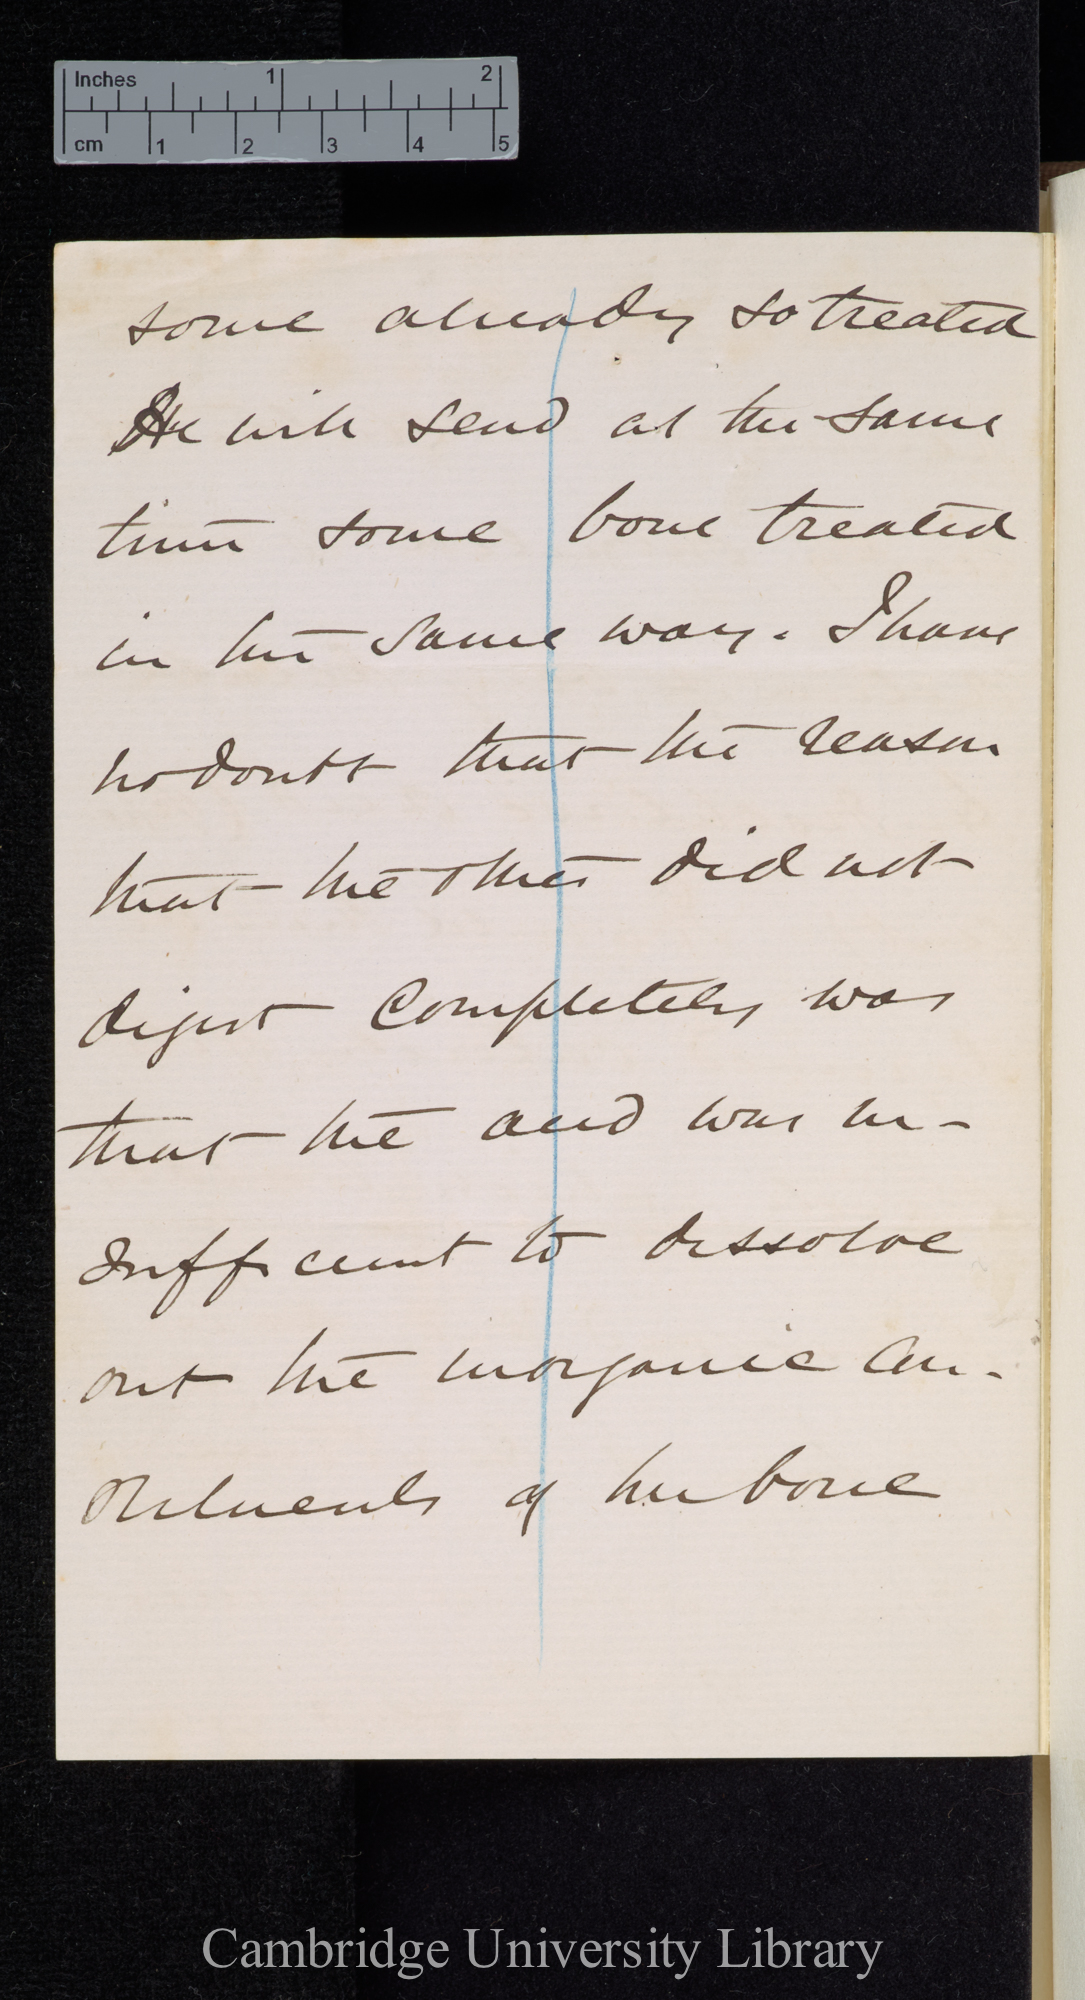 Inches 1 2
cm 1 2 3 4 5
some already so treated
He will send at the same
time some bone treated
in the same way. I have
no doubt that the reason
that the other did not
digest completely was
that the acid was in-
sufficient to dissolve
out the inorganic con-
stituents of the bone
Cambridge University Library